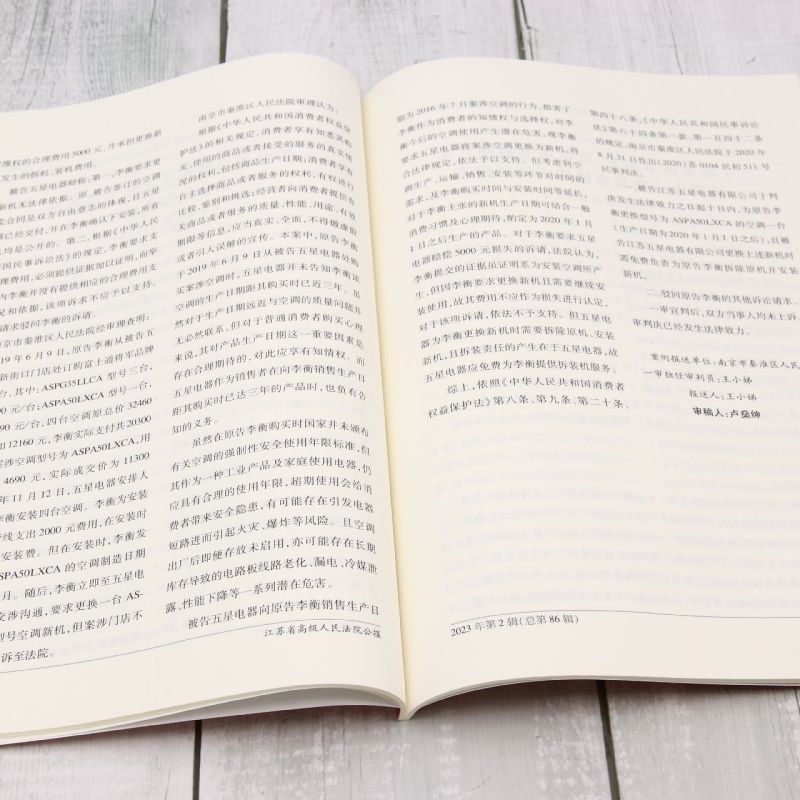 维权的合理费用5000元,并承担更换新
发生的拆机、装机费用。
被告五星电器辩称:第一,李衡要求更
新机无法律依据。原、被告签订的空调
卖合同是双方自由意志的体现,且五星
器已经交付,并在李衡确认下安装,所有
均是公开的。第二,根据《中华人民
国民事诉讼法》的规定,李衡要求支
理费用,必须提供证据加以证明,而举
内李衡并没有提供相应的合理费用支
况和依据,该项诉求不应予以支持。
请求驳回李衡的诉请。
南京市秦淮区人民法院经审理查明:
19年6月9日,原告李衡从被告五
新街口门店处订购富士通将军品牌
台,其中:ASPG35LLCA型号三台,
0元/台;ASPA50LXCA型号一台,
90元/台,四台空调原总价32460
扣12160元,李衡实际支付共20300
案涉空调型号为ASPA50LXCA,用
4690元,实际成交价为11300
年11月12日,五星电器安排人
李衡安装四台空调。李衡为安装
管线支出2000元费用,在安装时
安装费。但在安装时,李衡发
SPA50LXCA的空调制造日期
月。随后,李衡立即至五星电
交涉沟通,要求更换一台AS-
型号空调新机,但案涉门店不
诉至法院。
南京市秦淮区人民法院审理认为:
根据《中华人民共和国消费者权益保
护法》的相关规定,消费者享有知悉其购
买、使用的商品或者接受的服务的真实情
况的权利,包括商品生产日期;消费者享有
自主选择商品或者服务的权利,有权进行
比较、鉴别和挑选;经营者向消费者提供有
关商品或者服务的质量、性能、用途、有效
期限等信息,应当真实、全面,不得做虚假
或者引人误解的宣传。本案中,原告李衡
于2019年6月9日从被告五星电器处购
买案涉空调时,五星电器并未告知李衡该
空调的生产日期距其购买时已近三年。虽
然对于生产日期远近与空调的质量问题并
无必然联系,但对于普通消费者购买心理
来说,其对产品生产日期这一重要因素是
存在合理期待的,对此应享有知情权。而
五星电器作为销售者在向李衡销售生产日
距其购买时已达三年的产品时,也负有告
知的义务。
虽然在原告李衡购买时国家并未颁布
有关空调的强制性安全使用年限标准,但
其作为一种工业产品及家庭使用电器,仍
应具有合理的使用年限,超期使用会给消
费者带来安全隐患,有可能存在引发电器
短路进而引起火灾、爆炸等风险。且空调
出厂后即便存放未启用,亦可能存在长期
库存导致的电路板线路老化、漏电、冷媒泄
露、性能下降等一系列潜在危害。
被告五星电器向原告李衡销售生产日
江苏省高级人民法院公报
期为2016年7月案涉空调的行为,损害了
李衡作为消费者的知情权与选择权,对李
衡今后的空调使用产生潜在危害,现李衡
要求五星电器将案涉空调更换为新机,符
合法律规定,依法予以支持。但考虑到空
调生产、运输、销售、安装等环节对时间的
需要,及李衡购买时间与安装时间等延长,
对于李衡主张的新机生产日期可结合一般
消费习惯及心理期待,酌定为2020年1月
1日之后生产的产品。对于李衡要求五星
电器赔偿5000元损失的诉请,法院认为,
李衡提交的证据虽证明系为安装空调所产
生,但因李衡要求更换新机且需要继续安
装使用,故其费用不应作为损失进行认定,
对于该项诉请,依法不予支持。但五星电
器为李衡更换新机时需要拆除原机、安装
新机,且拆装责任的产生在于五星电器,故
五星电器应免费为李衡提供拆装机服务。
综上,依照《中华人民共和国消费者
权益保护法》第八条、第九条、第二十条、
第四十八条,《中华人民共和国民事诉讼
法》第六十四条第一款、第一百四十二条
的规定,南京市秦淮区人民法院于2020年
8月31日作出(2020)苏0104民初511号
民事判决:
一、被告江苏五星电器有限公司于判
决发生法律效力之日起十日内,为原告李
衡更换型号为ASPA50LXCA的空调一台
(生产日期为2020年1月1日之后),且被
告江苏五星电器有限公司更换上述新机时
需免费负责为原告李衡拆除原机并安装
新机。
二、驳回原告李衡的其他诉讼请求。
一审宣判后,双方当事人均未上诉,
审判决已经发生法律效力。
案例报送单位:南京市秦淮区人民
一审独任审判员:王小娣
报送人:王小娣
审稿人:卢燊绅
2023年第2辑(总第86辑)